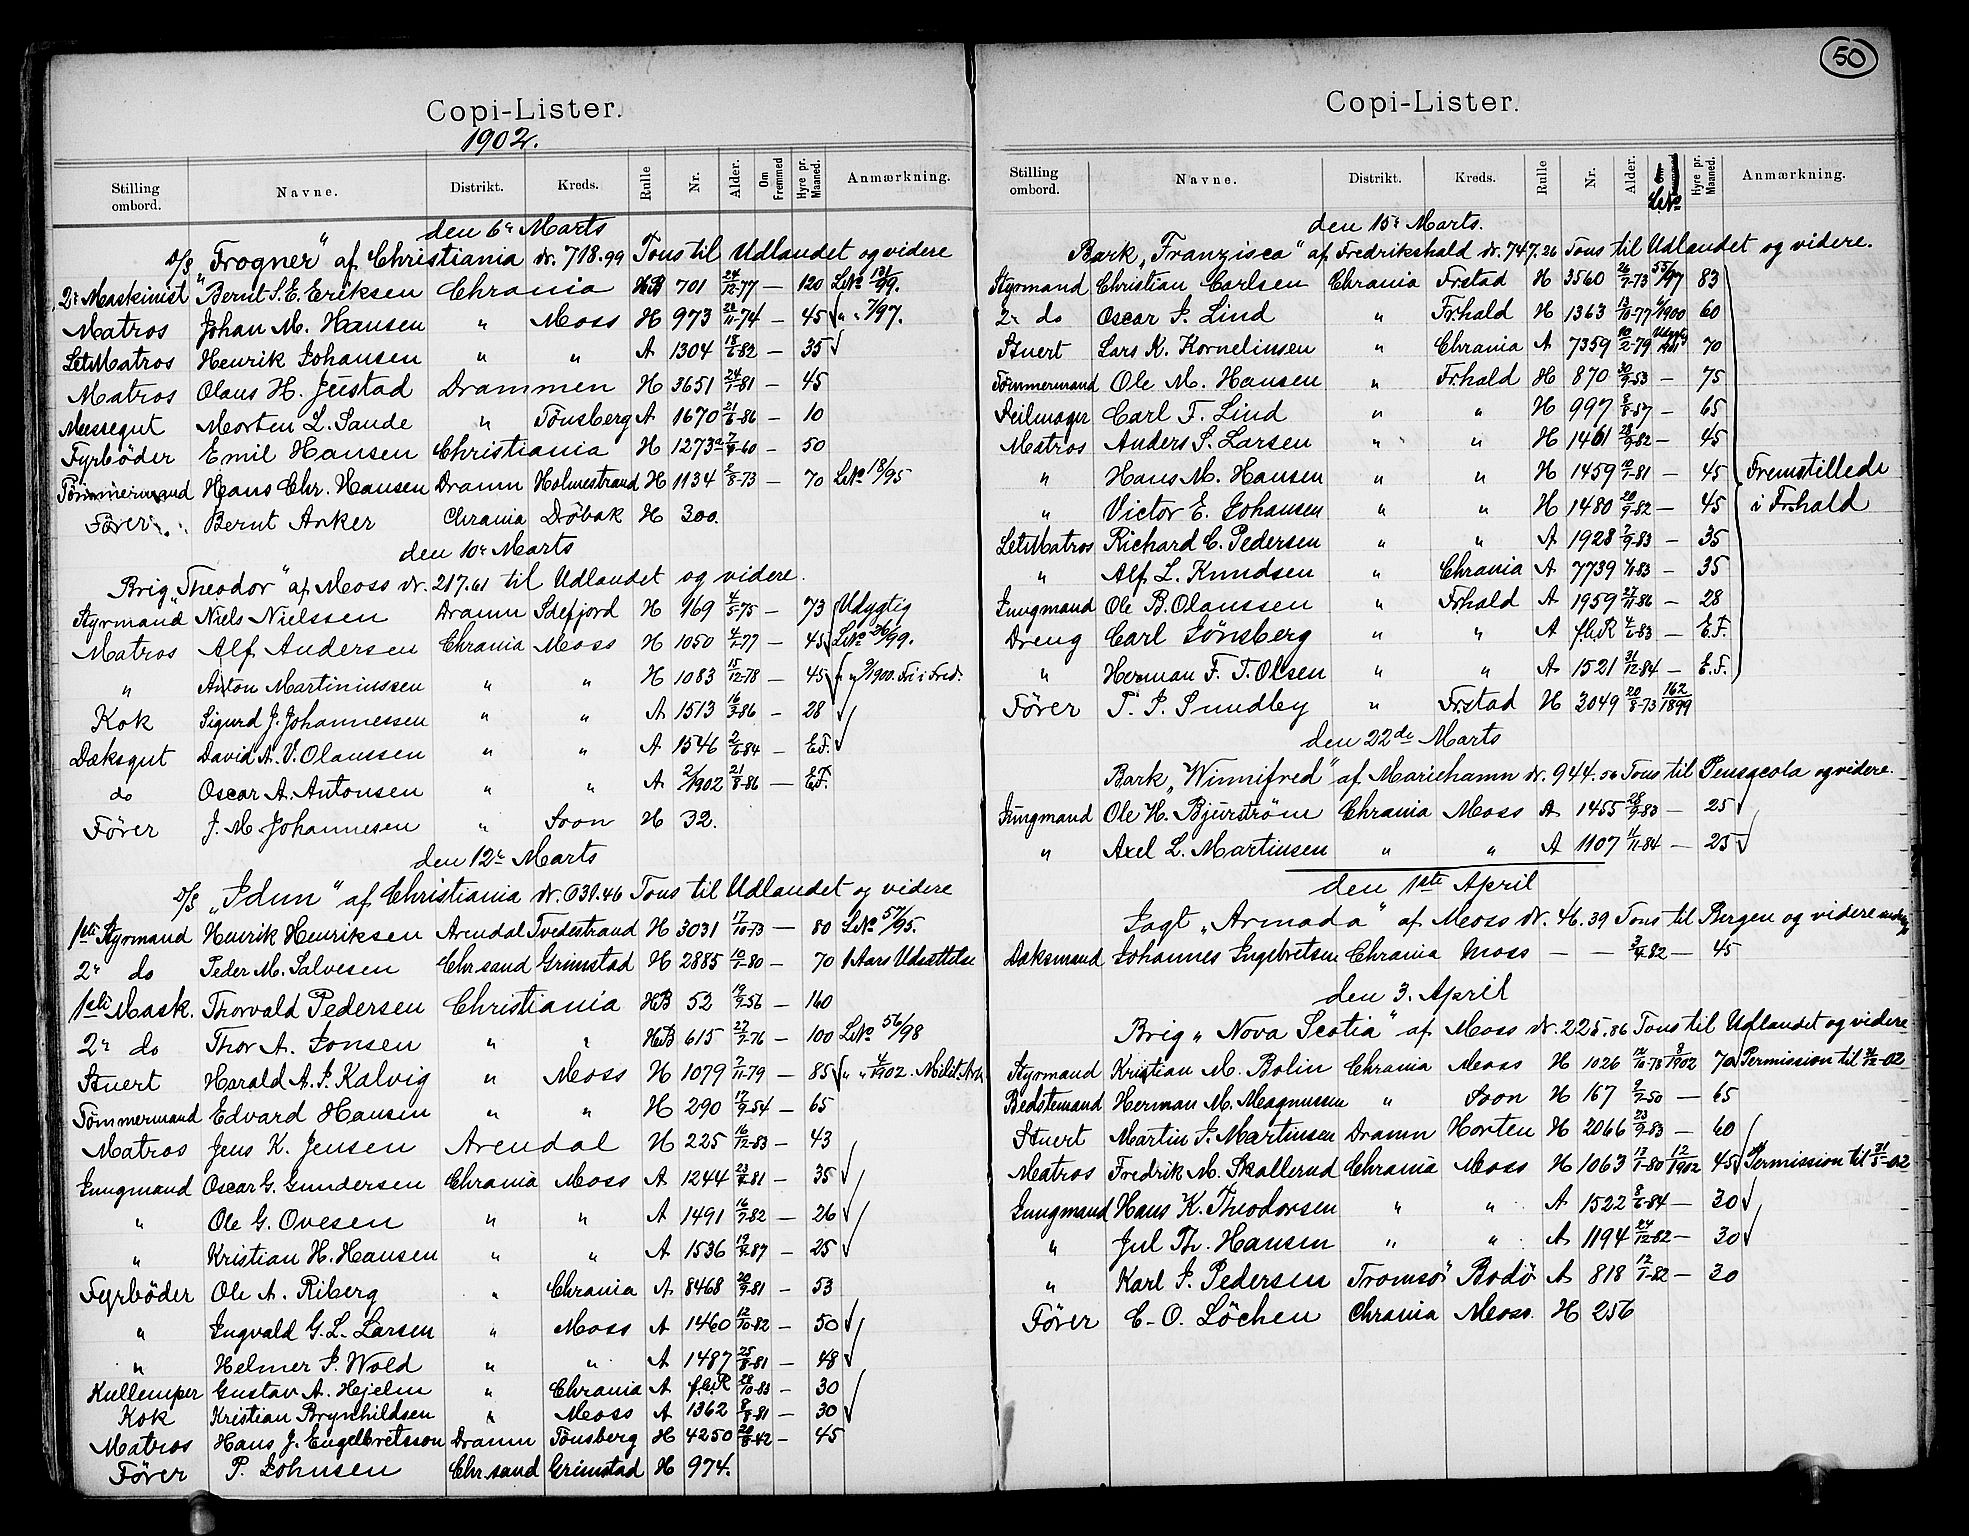 Copi-Lister.
1902.
Stilling ombord. Navne. Distrikt. Kreds. Rulle Nr. Alder. Om Fremmed Hyre pr. Maaned. Anmærkning.
den 6te Marts
D/S "Frogner" af Christiania dr. 718.99 Tons til Udlandet og videre
2n Maskinist Bernt S. E. Eriksen Chrania HB 701 24/12-77 — 120 LNo 131/99.
Matros Johan M. Hansen " Moss H 973 22/11-74 — 45 " " 7/97.
LetMatros Henrik Johansen " " A 1304 18/6-82 — 35
Matros Olaus H. Justad Drammen H 3651 24/1-81 — 45
Messegut Morten L. Sande " Tönsberg A 1670 21/6-86 — 10
Fyrböder Emil Hansen Christiania H 1273a 7/9-60 — 50
Tömmermand Hans Chr. Hansen Dramn Holmestrand H 1134 2/8-73 — 70 LNo 18/95
Förer Bernt Anker Chrania Dröbak H 300.
den 10n Marts
Brig "Theodor" af Moss dr. 217.61 til Udlandet og videre.
Styrmand Niels Nielssen Dramn Sdefjord H 169 4/5-75 — 73 Udygtig
Matros Alf Andersen Chrania Moss H 1050 4/1-77 — 45 LNo 26/99.
" Anton Martiniussen " " H 1083 15/12-78 — 45 " " 9/1900. Fri i Fred.
Kok Sigurd J. Johannessen " " A 1513 16/3-86 — 28
Dæksgut David A. V. Olaussen " " A 1546 2/6-84 — E.F.
do Oscar A. Antonsen " " A 2/1902 21/8-86 — E.F.
Förer J. M. Johannesen " Soon H 32.
den 12te Marts
D/S "Idun" af Christiania dr. 631.46 Tons til Udlandet og videre
1ste Styrmand Henrik Henriksen Arendal Tvedestrand H 3031 17/10-73 — 80 LNo 57/95.
2n do Peder M. Salvesen Chr.sand Grimstad H 2885 10/1-80 — 70 1 Aars Udsættelse
1ste Mask. Thorvald Pedersen Christiania HB 52 19/9-56 — 160
2n do Thor A. Jonsen " " HB 615 27/2-76 — 100 LNo 56/98
Stuert Harald A. S. Kalvig " Moss H 1079 2/11-79 — 85 " " 4/1902. Milit. Arb.
Tömmermand Edvard Hansen " " H 290 17/9-54 — 65
Matros Jens K. Jensen Arendal H 225 16/12-83 — 43
Jungmand Oscar G. Gundersen Chrania Moss A 1244 23/8-81 — 35
" Ole G. Ovesen " " A 1491 16/7-82 — 26
" Kristian H. Hansen " " A 1536 19/2-87 — 25
Fyrböder Ole A. Riberg " Chrania A 8468 20/9-81 — 53
" Ingvald G. L. Larsen " Moss A 1460 12/10-82 — 50
" Helmer J. Wold " " A 1487 25/8-81 — 48
Kullemper Gustav A. Hejelm " Chrania A f.e.R 28/10-83 — 30
Kok Kristian Brynhildsen " Moss A 1362 8/8-81 — 30
Matros Hans J. Engelbretsson Dramn Tönsberg H 4250 20/8-42 — 45
Förer P. Johnsen Chr.sand Grimstad H 974.
50
Copi-Lister.
Stilling ombord. Navne. Distrikt. Kreds. Rulle Nr. Alder. LNo Hyre pr. Maaned. Anmærkning.
den 15n Marts.
Bark "Franzisca" af Fredrikshald dr. 747.26 Tons til Udlandet og videre.
Styrmand Christian Carlsen Chrania Frstad H 3560 26/7-73 53/97 83
2n do Oscar J. Lind " Fr.hald H 1363 13/10-77 4/1900 60
Stuert Lars K. Kornelinsen " Chrania A 7359 10/2-79 70
Tömmermand Ole M. Hansen " Fr.hald H 870 30/9-53 — 75
Seilmager Carl F. Lind " " H 997 8/8-57 — 65
Matros Anders S. Larsen " " H 1461 28/9-82 — 45
" Hans M. Hansen " " H 1459 10/1-81 — 45 Fremstillede
" Victor E. Johansen " " H 1480 20/9-82 — 45 i Fr.hald
LetMatros Richard C. Pedersen " " A 1928 7/9-83 — 35
" Alf L. Knudsen " Chrania A 7739 4/11-83 — 35
Jungmand Ole B. Olaussen " Fr.hald A 1959 27/11-86 — 28
Dreng Carl Lönsberg " " A f.e.R 4/6-83 — E.F.
" Herman F. T. Olsen " " A 1521 31/12-84 — E.F.
Förer T. P. Sundby " Frstad H 3049 20/8-73 162/1899
den 22de Marts
Bark "Winnifred" af Mariehamn dr. 944.56 Tons til Pensacola og videre.
Jungmand Ole H. Bjurström Chrania Moss A 1455 28/9-83 — 25
" Axel L. Martinsen " " A 1107 4/11-84 — 25
den 1ste April
Jagt "Armada" af Moss dr. 46.39 Tons til Bergen og videre
Dæksmand Johannes Ingebretsen Chrania Moss — — 3/4-82 — 45
den 3. April
Brig "Nova Scotia" af Moss dr. 225.86 Tons til Udlandet og videre
Styrmand Kristian M. Bolin Chrania Moss H 1026 12/10-78 8/1902 70 Permission til 31/12-02
Bedstemand Herman M. Magnussen " Soon H 167 2/7-50 — 65
Stuert Martin J. Martinsen Dramn Horten H 2066 23/9-83 — 60
Matros Fredrik M. Skallerud Chrania Moss H 1063 13/1-80 12/1902 45 Permission til 31/5-02
Jungmand Hans K. Theodorsen " " A 1522 8/6-84 — 30
" Jul Th. Hansen " " A 1194 24/12-82 — 30
" Karl J. Pedersen Tromsö Bodö A 818 12/1-82 — 30
Förer C. O. Löchen Chrania Moss. H 256